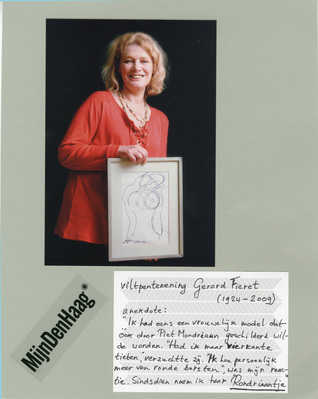 MijnDenHaag®
viltpentekening Gerard Fieret
(1924-2009)
anekdote:
"Ik had eens een vrouwelijk model dat
óók door Piet Mondriaan geschilderd wil-
de worden. "Had ik maar vierkante
tieten", verzuchtte zij. "Ik hou persoonlijk
meer van ronde borsten", was mijn reac-
tie. Sindsdien noem ik haar "Rondriaantje"